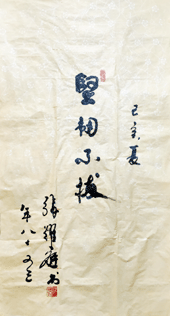 己亥夏
堅韌不拔
張耀庭書
年八十又三